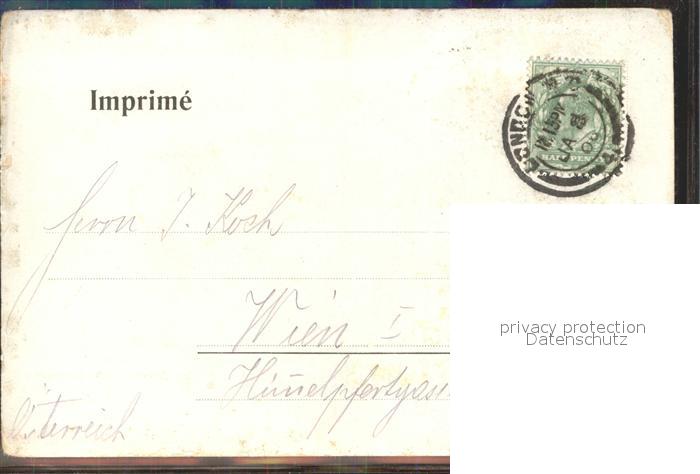 Imprimé
LONDON
12.15PM
JA 3
HALFPENNY
Herrn J. Koch
Wien I
Himmelpfortgasse
Österreich
privacy protection
Datenschutz